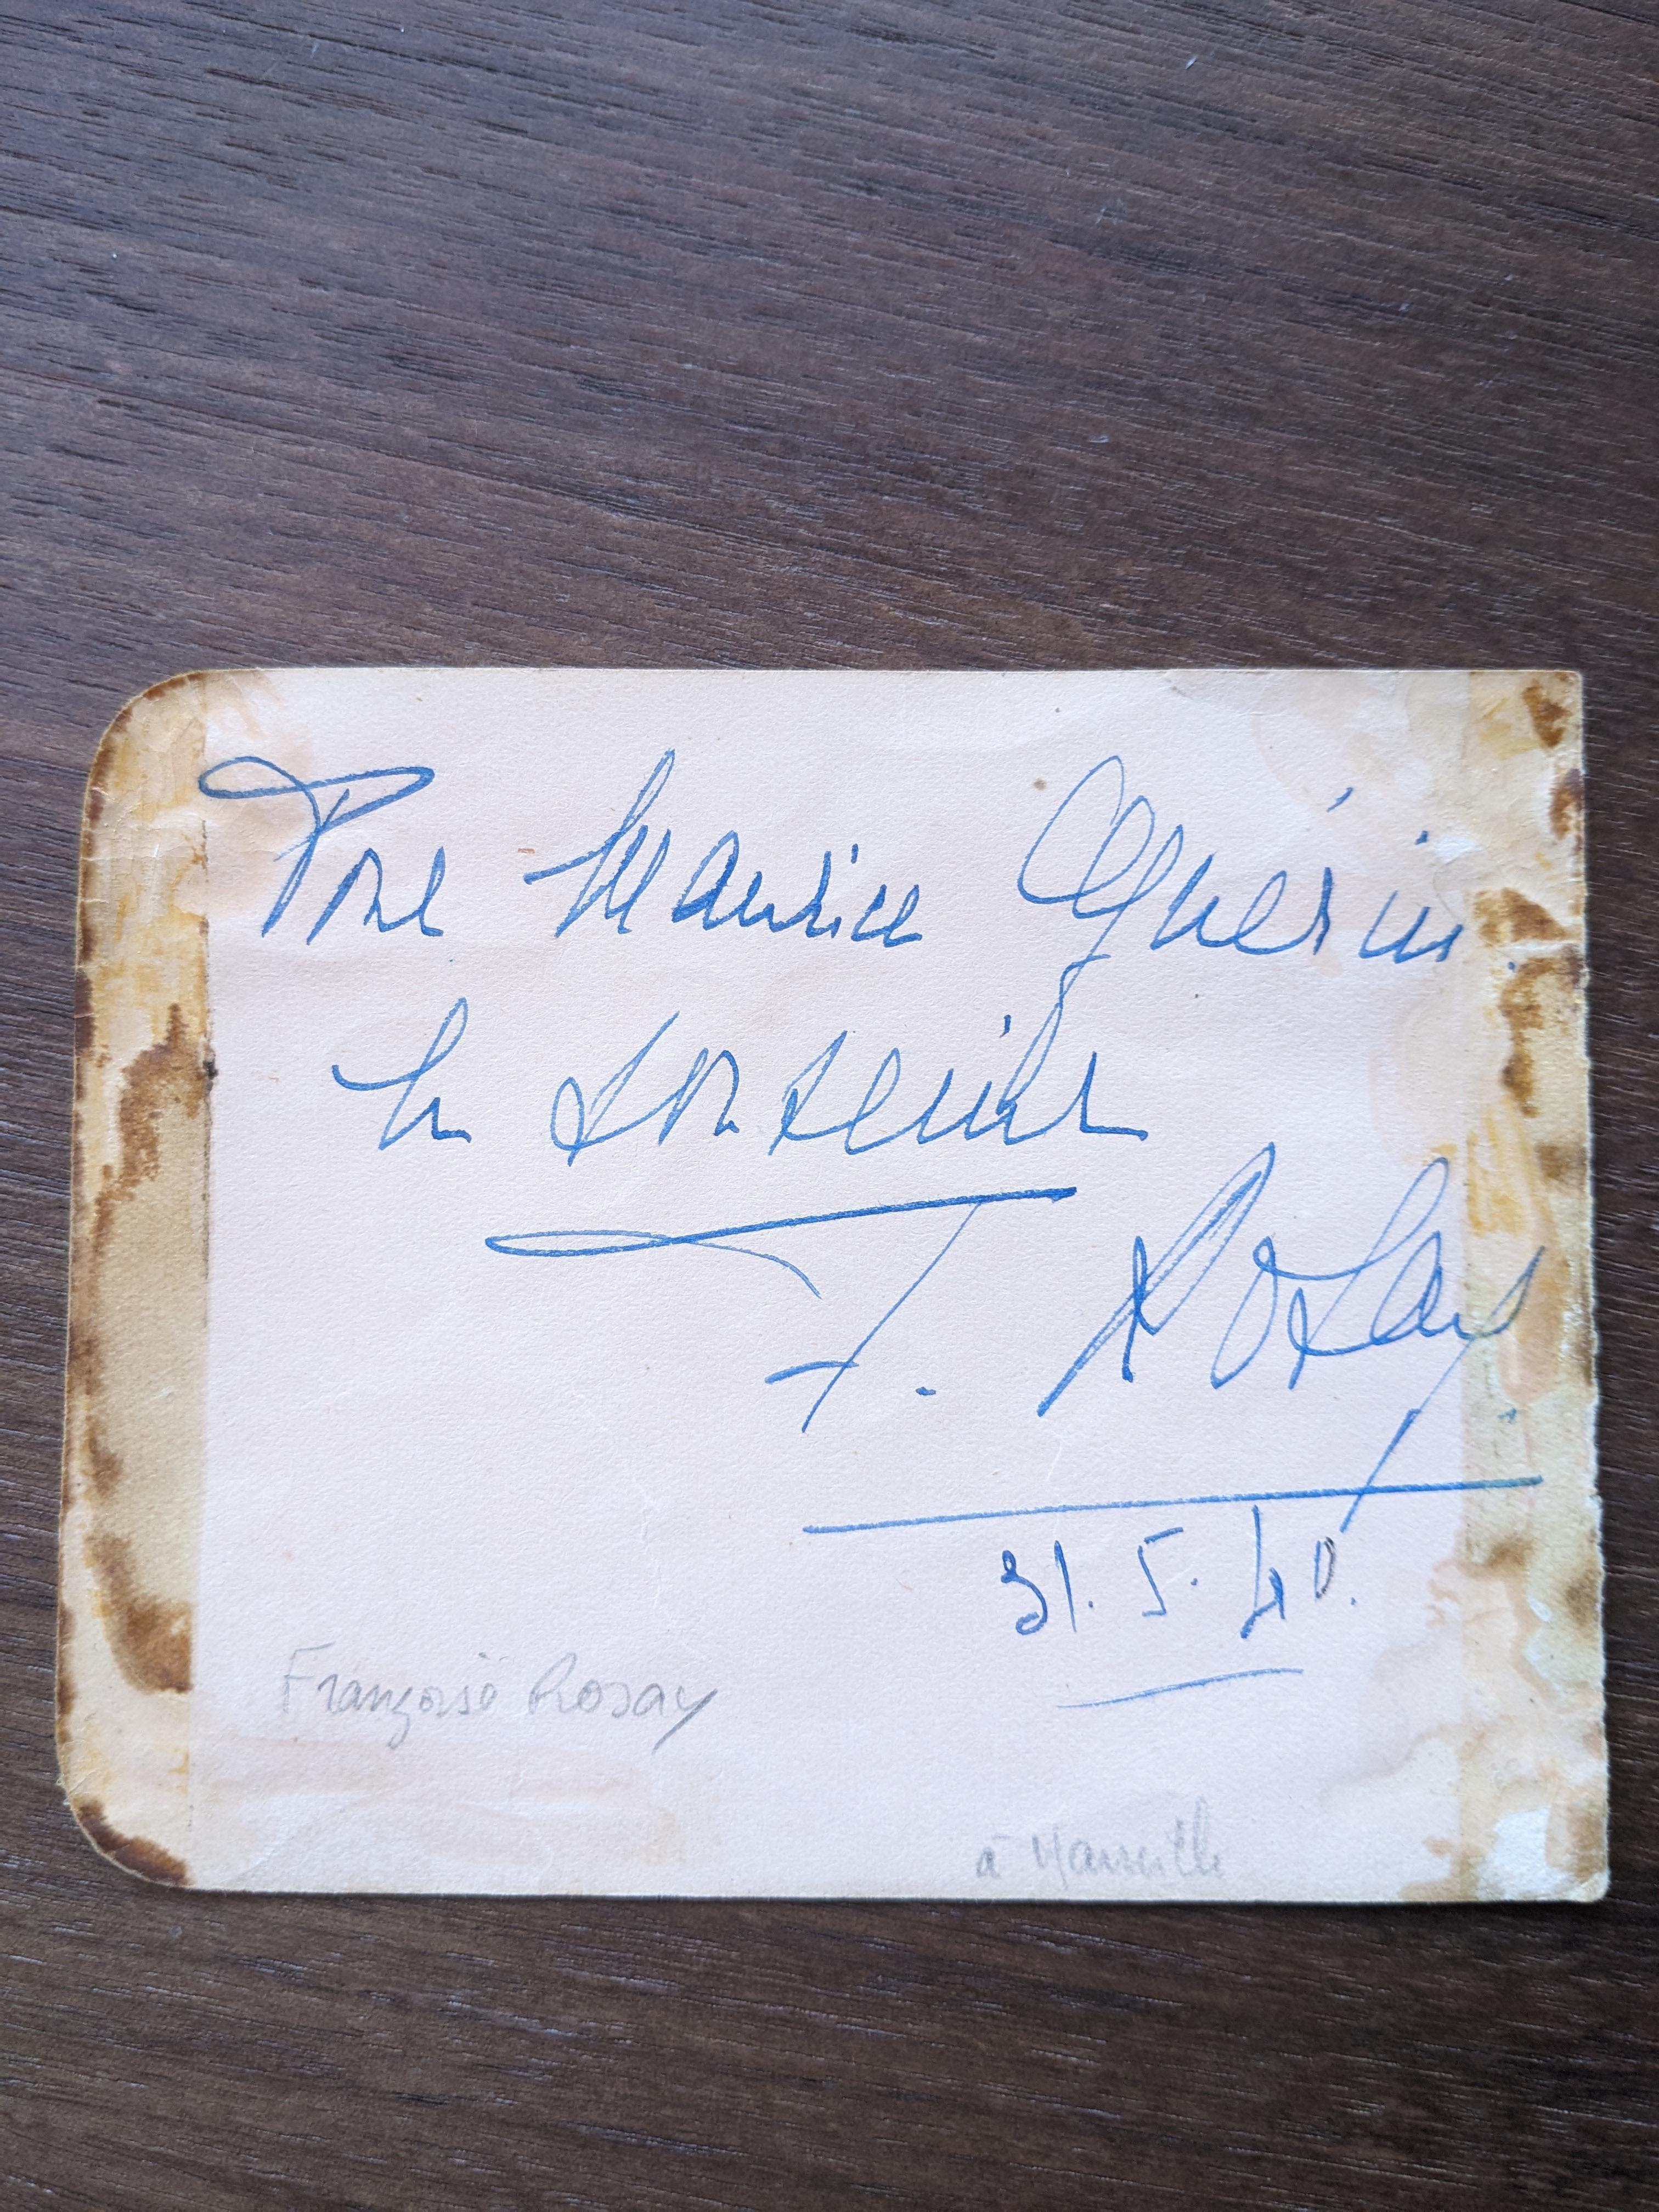 Pour Maurice Guérin
en souvenir
F. Rosay
31.5.40.
Françoise Rosay
à Marseille